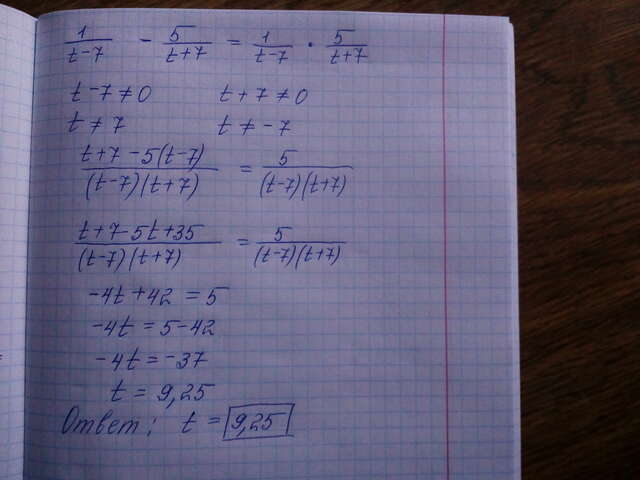 1/(t-7) - 5/(t+7) = 1/(t-7) · 5/(t+7)
t-7≠0 t+7≠0
t≠7 t≠-7
(t+7-5(t-7))/((t-7)(t+7)) = 5/((t-7)(t+7))
(t+7-5t+35)/((t-7)(t+7)) = 5/((t-7)(t+7))
-4t+42=5
-4t=5-42
-4t=-37
t=9,25
Ответ: t=9,25